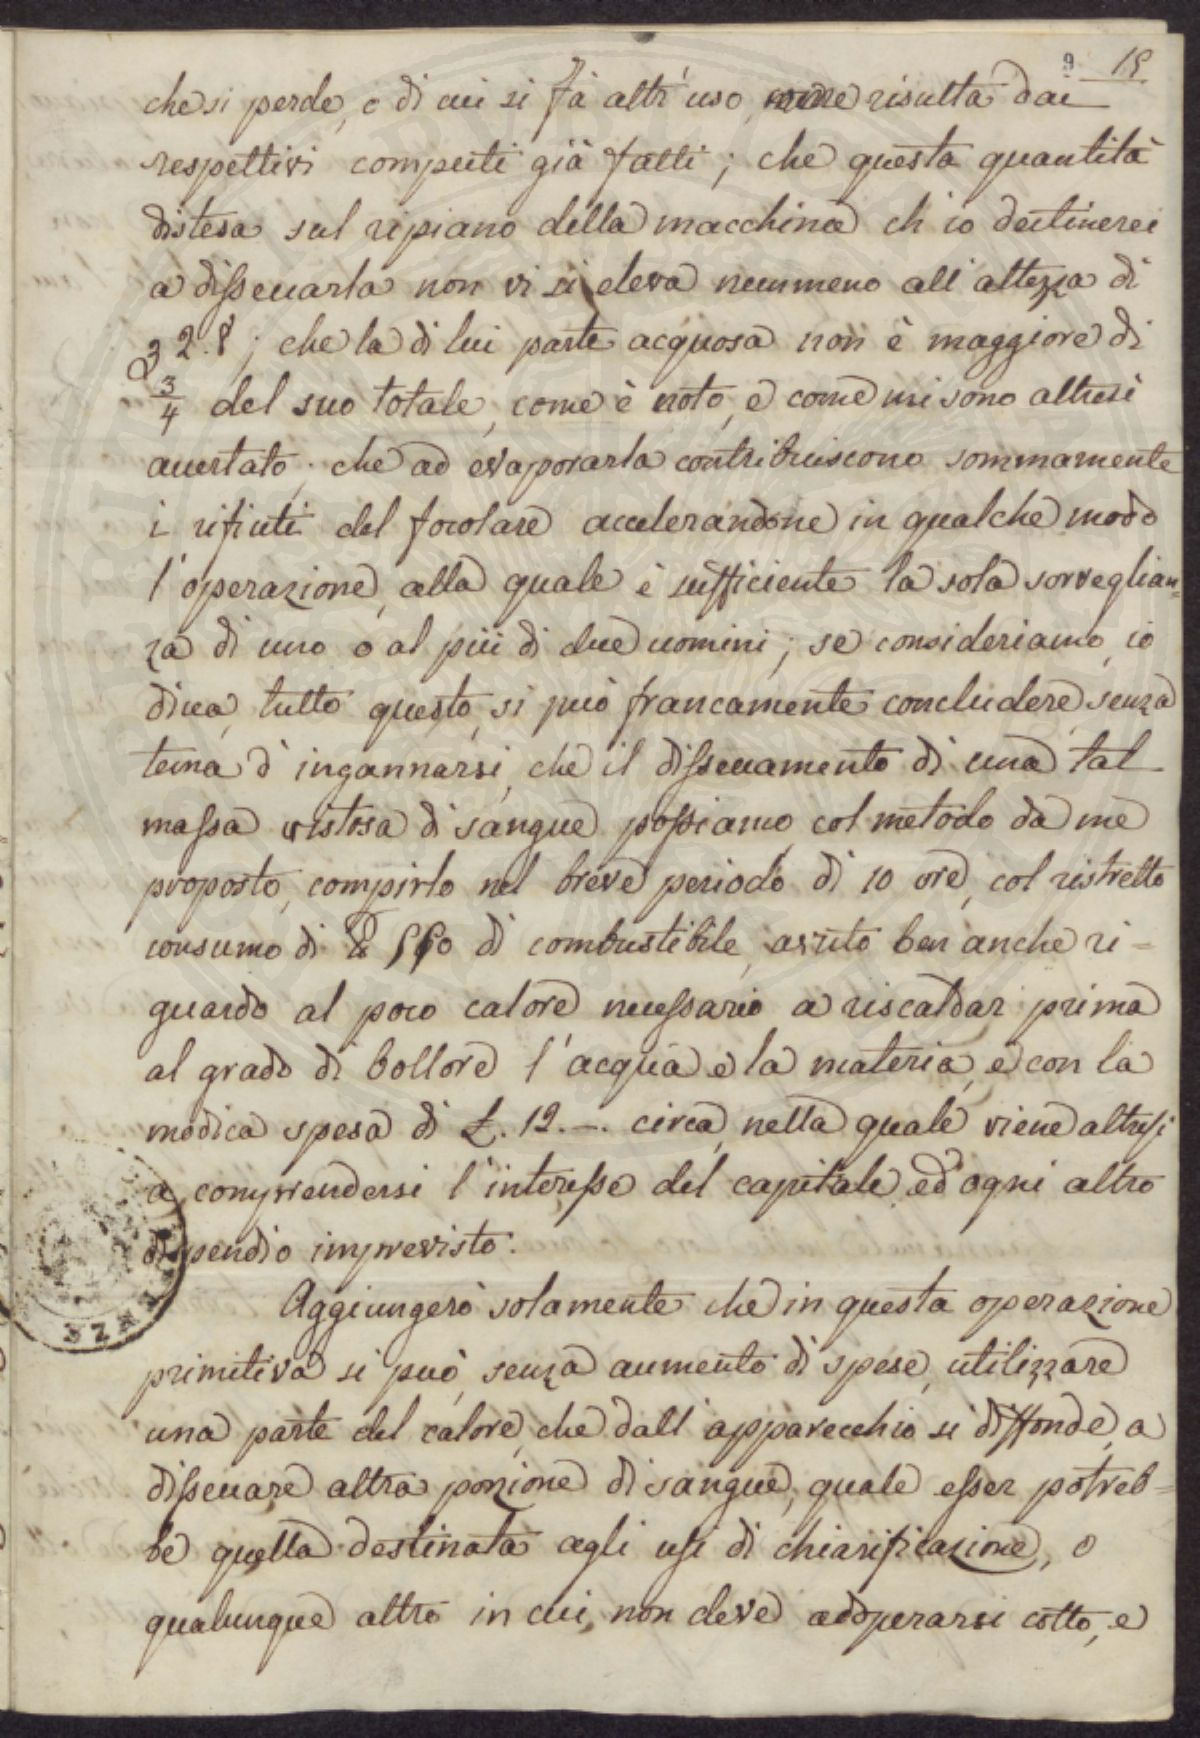 9 15
che si perde, o di cui si fà altr'uso, come risulta dai
respettivi computi già fatti; che questa quantità
distesa sul ripiano della macchina ch'io destinerei
a disseccarla non vi si eleva nemmeno all'altezza di
2.8; che la di lui parte acquosa non è maggiore di
3/4 del suo totale, come è noto, e come mi sono altresì
accertato; che ad evaporarla contribuiscono sommamente
i rifiuti del focolare accelerandone in qualche modo
l'operazione, alla quale è sufficiente la sola sorveglian=
za di uno o al più di due uomini; se consideriamo, io
diceva, tutto questo, si può francamente concludere, senza
tema d'ingannarsi, che il disseccamento di una tal
massa vistosa di sangue possiamo col metodo da me
proposto, compirlo nel breve periodo di 10 ore, col ristretto
consumo di di combustibile, avuto ben anche ri=
guardo al poco calore necessario a riscaldar prima
al grado di bollore l'acqua e la materia, e con la
modica spesa di £. 12.–. circa, nella quale viene altresì
a comprendersi l'interesse del capitale, ed ogni altro
dispendio imprevisto.
Aggiungerò solamente che in questa operazione
primitiva si può, senza aumento di spese, utilizzare
una parte del calore, che dall'apparecchio si diffonde, a
disseccare altra porzione di sangue, quale esser potreb=
be quella destinata agli usi di chiarificazione, o
qualunque altro in cui non deve adoperarsi cotto, e